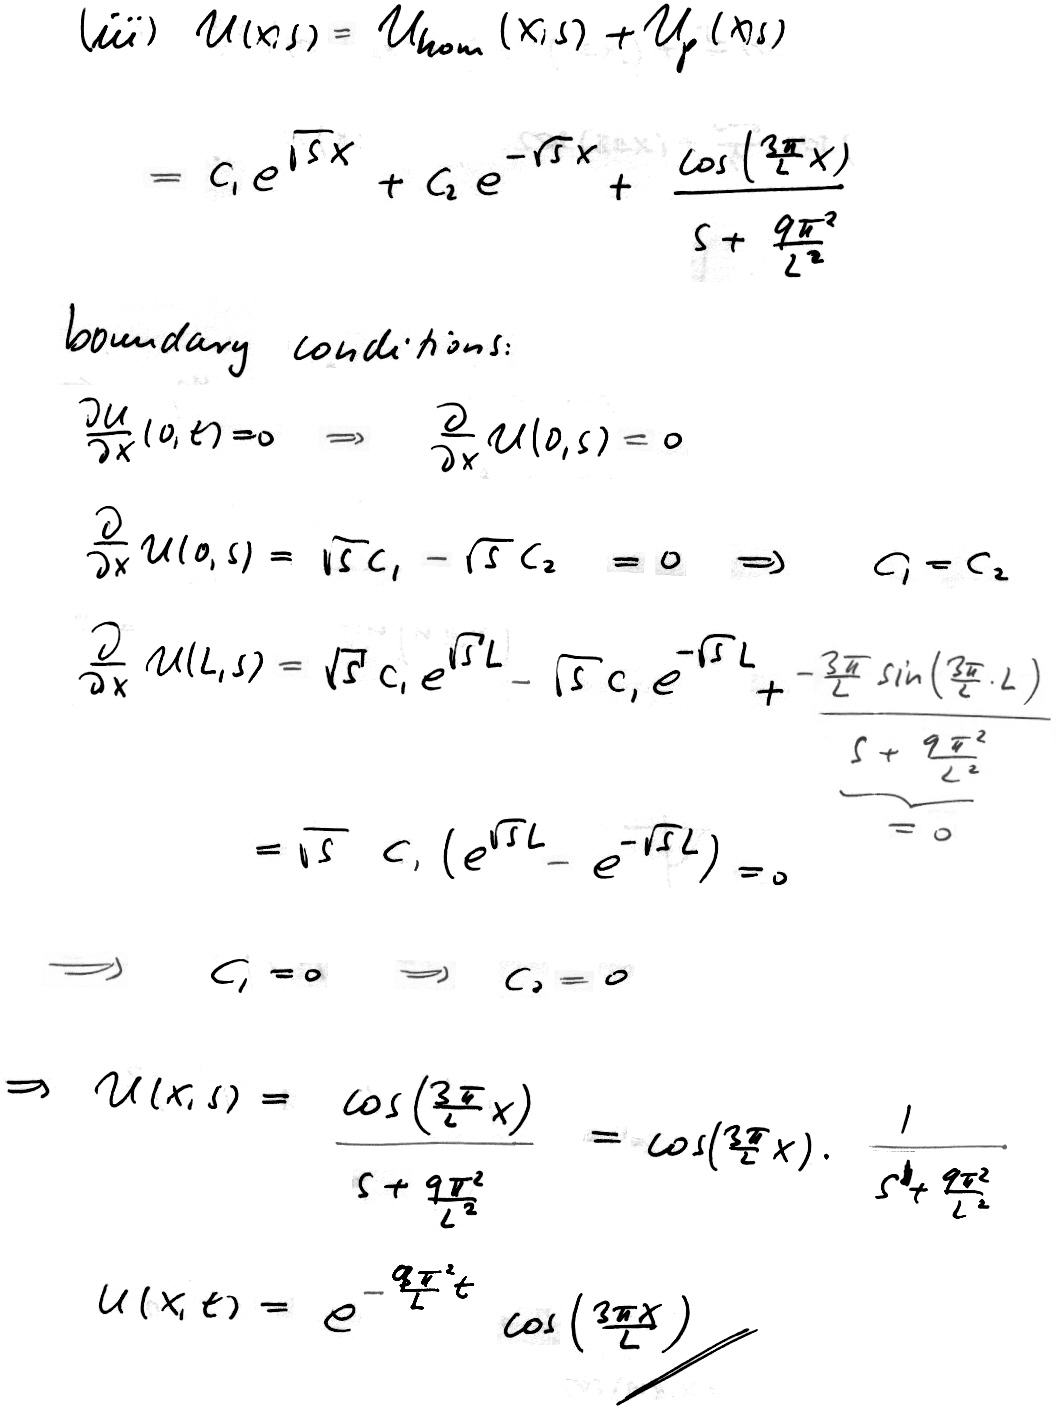 (iii) U(x,s) = U_hom (x,s) + U_p (x,s)
= C₁ e^{√s x} + C₂ e^{-√s x} + cos(3π/L x) / (s + 9π²/L²)
boundary conditions:
∂u/∂x (0,t) = 0 ⇒ ∂/∂x U(0,s) = 0
∂/∂x U(0,s) = √s C₁ - √s C₂ = 0 ⇒ C₁ = C₂
∂/∂x U(L,s) = √s C₁ e^{√s L} - √s C₁ e^{-√s L} + (-3π/L sin(3π/L · L)) / (s + 9π²/L²)
= 0
= √s C₁ (e^{√s L} - e^{-√s L}) = 0
⇒ C₁ = 0 ⇒ C₂ = 0
⇒ U(x,s) = cos(3π/L x) / (s + 9π²/L²) = cos(3π/L x) · 1 / (s + 9π²/L²)
u(x,t) = e^{-9π²/L t} cos(3πx/L)